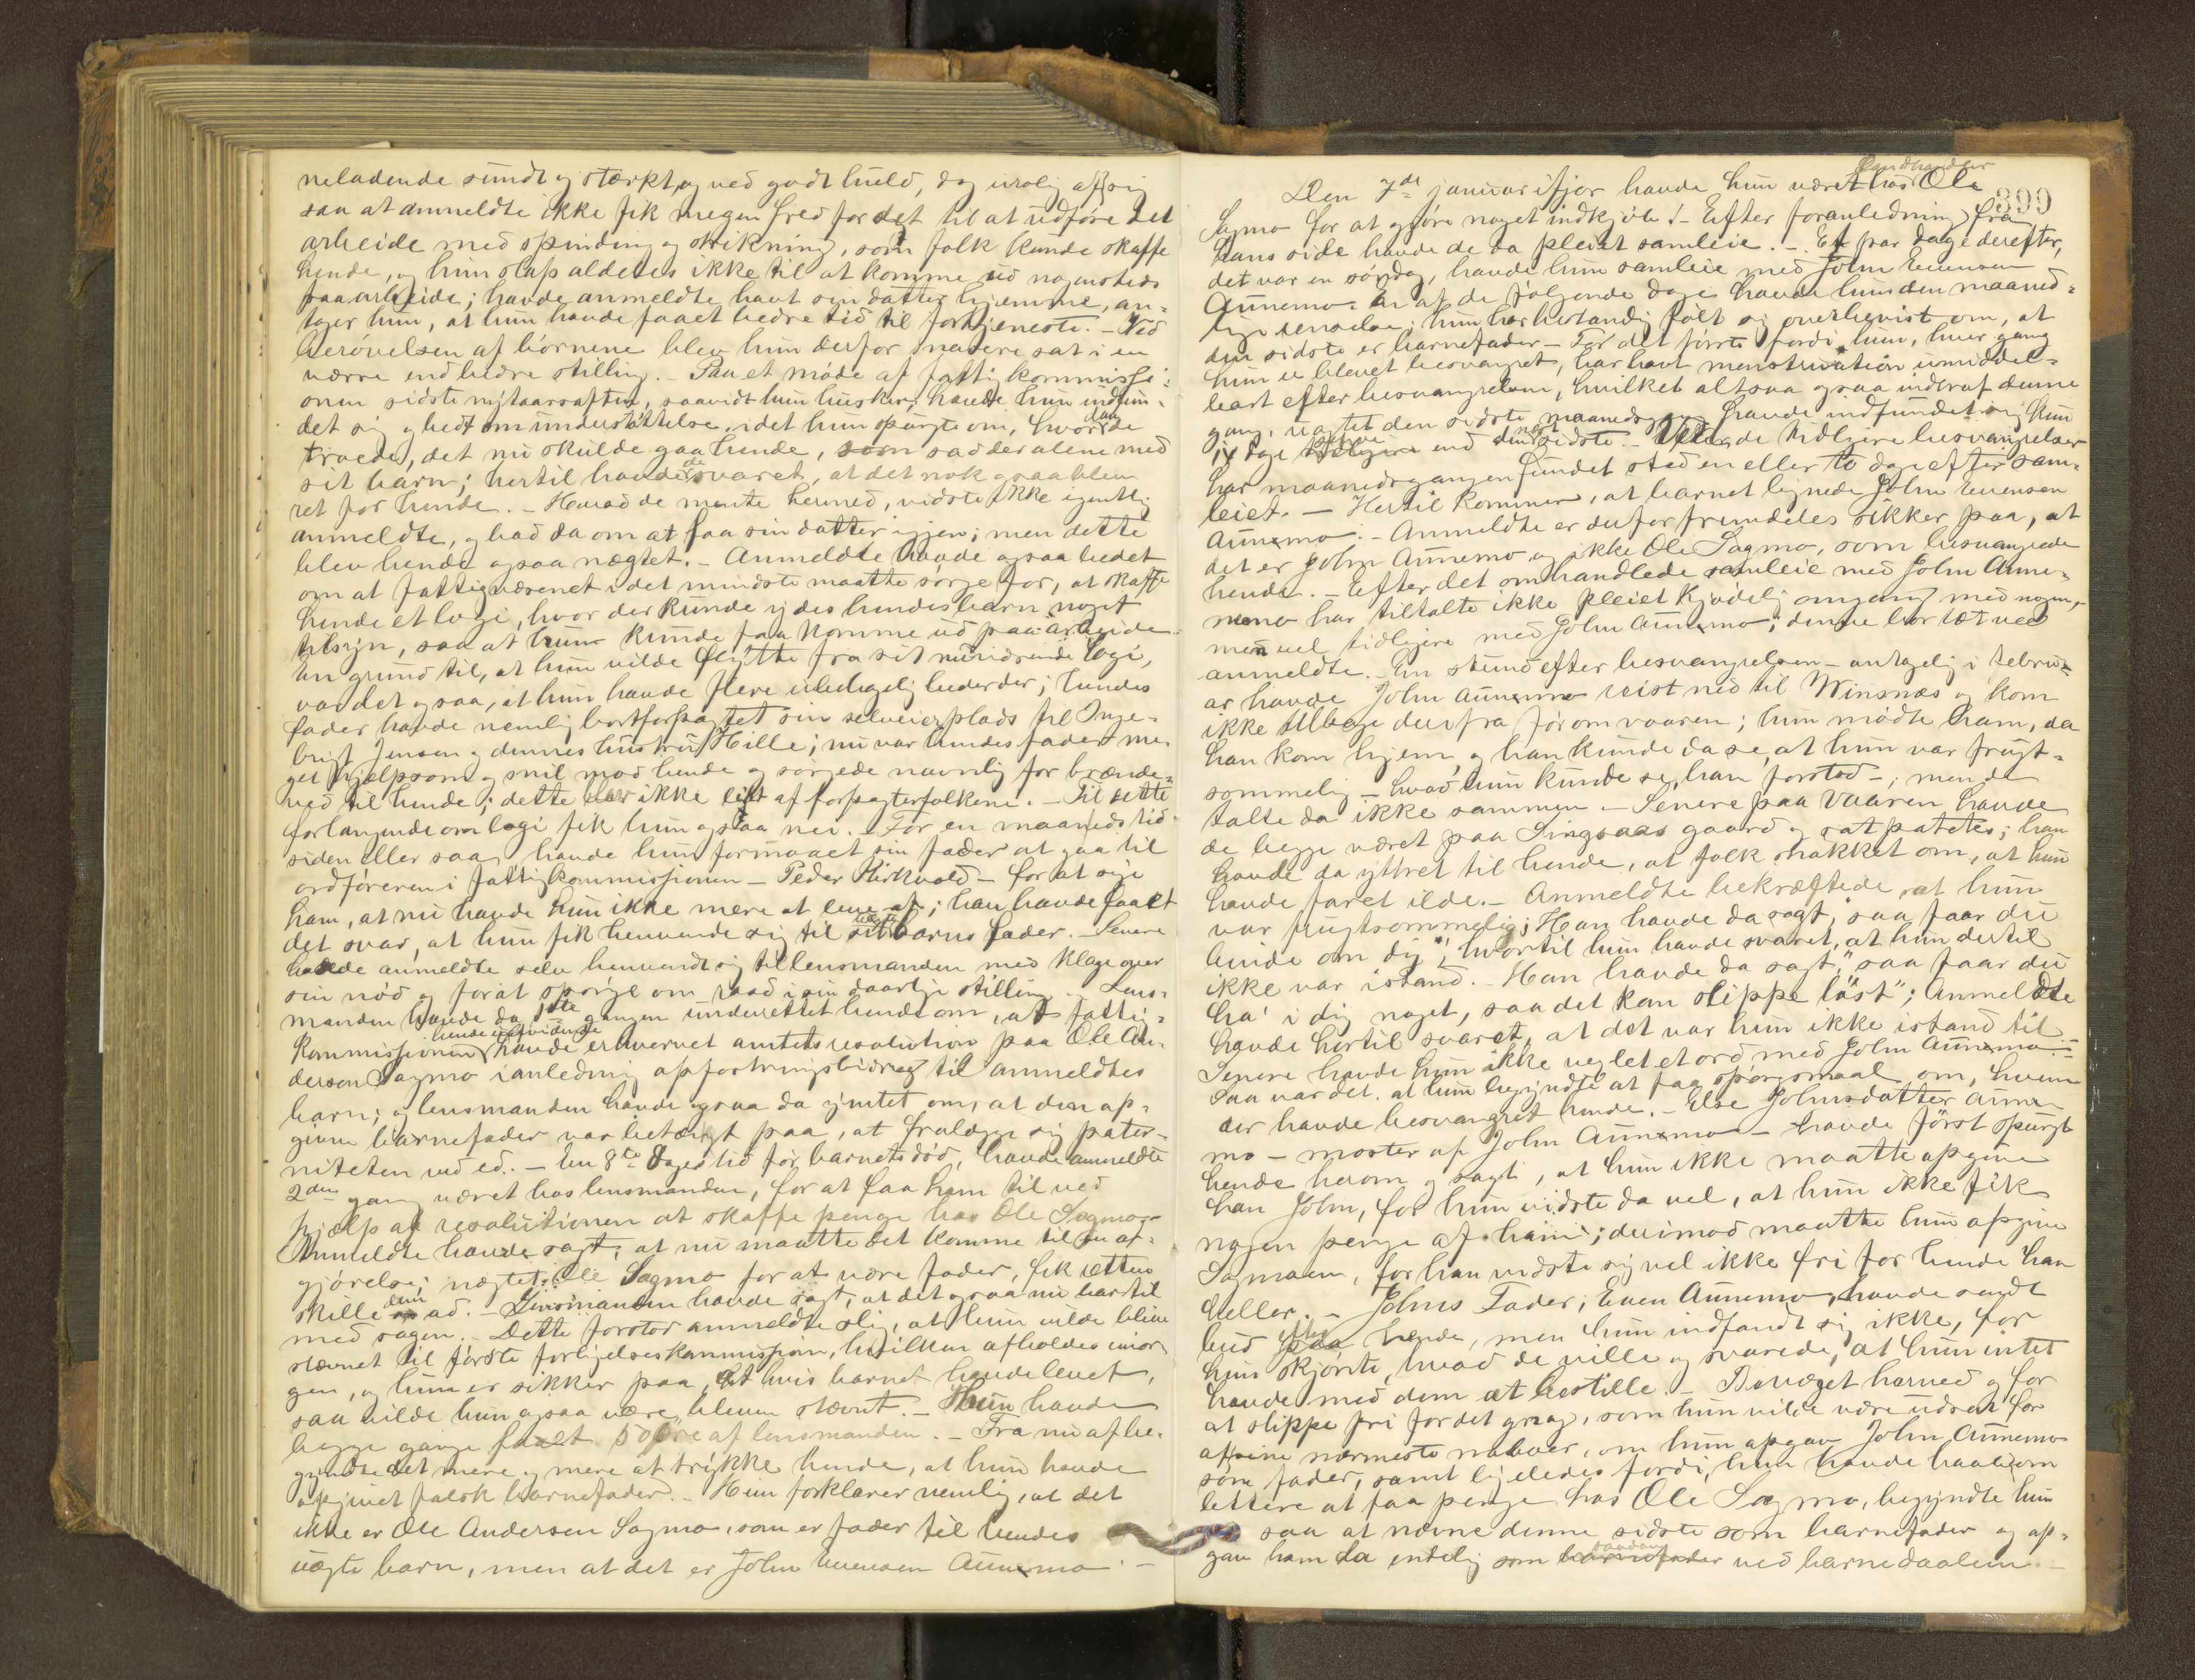 neladende sundt og stærkt, og ved godt huld, dog urolig af sig
saa at anmeldte ikke fik megen fred for det til at udføre det
arbeide med spinding og strikning, som folk kunde skaffe
hende, og hun slap aldeles ikke til at komme ud nogensteds
paa arbeide; havde anmeldte havt sin datter hjemme, an-
tager hun, at hun havde faaet bedre tid til fortjeneste. – Ved
berøvelsen af børnene blev hun derfor snarere sat i en
værre end bedre stilling. – Paa et møde af fattigkommissi-
onen sidste nytaarsaften, saavidt hun husker, havde hun indfun-
det sig og bedt om understøttelse, idet hun spurgte om, hvordan de
troede, det nu skulde gaa hende, som sad der alene med
sit barn; hertil havde de svaret, at det nok ogsaa blev
ret for hende. – Hvad de mente hermed, vidste ikke egentlig
anmeldte, og bad da om at faa sin datter igjen; men dette
blev hende ogsaa nægtet. – Anmeldte havde ogsaa bedet
om at fattigvæsenet i det mindste maatte sørge for, at skaffe
hende et logi, hvor der kunde ydes hendes barn noget
tilsyn, saa at hun kunde faa komme ud paa arbeide.
En grund til, at hun vilde flytte fra sit nuværende logi,
var det ogsaa, at hun havde flere ubehageligheder der; hendes
fader havde nemlig bortforpagtet sin selveierplads til Inge-
brigt Jensen og dennes hustru Hille; nu var hendes fader me-
get hjælpsom og snil mod hende og sørgede navnlig for brænde-
ved til hende; dette blev ikke likt af forpagterfolkene. – Til dette
forlangende om logi fik hun ogsaa nei. – For en maaneds tid
siden eller saa, havde hun formaaet sin fader at gaa til
ordføreren i fattigkommissionen – Peder Kirkvold – for at sige
ham, at nu havde hun ikke mere at leve af; han havde faaet
det svar, at hun fik henvende sig til sit barns fader. – Senere
havde anmeldte selv henvendt sig til lensmanden med klage over
sin nød og for at spørge om raad i sin daarlige stilling. – Lens-
manden havde da 1ste gangen underrettet hende om, at fattig-
kommissionen hende uafvidende havde erhvervet amtets resolution paa Ole An-
dersen Sagmo i anledning opfostringsbidrag til anmeldtes
barn; og lensmanden havde ogsaa da ymtet om, at den op-
givne barnefader var betænkt paa, at fralægge sig pater-
niteten ved ed. – En 8te dages tid før barnets død, havde anmeldte
2den gang været hos lensmanden, for at faa ham til ved
hjælp af resolutionen at skaffe penge hos Ole Sagmo. –
Anmeldte havde sagt, at nu maatte det komme til en af-
gjørelse; nægtet Ole Sagmo for at være fader, fik retten
skille dem ad. – Lensmanden havde sagt, at det ogsaa nu bar til
med sagen. – Dette forstod anmeldte slig, at hun vilde blive
stævnet til første forligelseskommission, hvilken afholdes imor-
gen, og hun er sikker paa, at hvis barnet havde levet,
saa vilde hun ogsaa være bleven stævnt. – Hun havde
begge gange faaet 50 øre af lensmanden. – Fra nu af be-
gyndte det mere og mere at trykke hende, at hun havde
opgivet falsk barnefader. – Hun forklarer nemlig, at det
ikke er Ole Andersen Sagmo, som er fader til hendes
uægte barn, men at det er John Evensen Aunemo. –
399
Den 7de januar ifjor havde hun været hos Landhandler Ole
Sagmo for at gjøre noget indkjøb. – Efter foranledning fra
hans side havde de da pleiet samleie. – Et par dage derefter,
det var en søndag, havde hun samleie med John Evensen
Aunemo. En af de følgende dage havde hun den maaned-
lige renselse; hun har bestandig følt sig overbevist om, at
den sidste er barnefader – For det første fordi hun, hver gang
hun er blevet besvangret, har havt menstruation umiddel-
bart efter besvangrelsen, hvilket altsaa ogsaa indtraf denne
gang, uagtet den sidste maanedsgang havde indfundet sig kun
... dage ... end den næst sidste. – Ved de tidligere besvangrelser
har maanedsgangen fundet sted en eller to dage efter sam-
leiet. – Hertil kommer, at barnet lignede John Evensen
Aunemo. – Anmeldte er derfor fremdeles sikker paa, at
det er John Aunemo og ikke Ole Sagmo, som besvangrede
hende. – Efter det omhandlede samleie med John Aune-
mo har tiltalte ikke pleiet kjødelig omgang med nogen, –
men vel tidligere med John Aunemo; denne bor tæt ved
anmeldte. – En stund efter besvangrelsen – antagelig i febru-
ar havde John Aunemo reist ned til Winsnæs og kom
ikke tilbage derfra før om vaaren; hun mødte ham, da
han kom hjem, og han kunde da se, at hun var frugt-
sommelig – hvad hun kunde se, han forstod –; men de
talte da ikke sammen. – Senere paa vaaren havde
de begge været paa Singsaas gaard og sat potetes; han
havde da yttret til hende, at folk snakket om, at hun
havde faret ilde. – Anmeldte bekræftede, at hun
var frugtsommelig; Han havde da sagt, "saa faar du
binde om dig"; hvortil hun havde svaret, at hun dertil
ikke var istand. – Han havde da sagt, "saa faar du
ha' i dig noget, saa det kan slippe løst"; Anmeldte
havde hertil svaret, at det var hun ikke istand til. –
Senere havde hun ikke vexlet et ord med John Aunemo. –
Saa var det, at hun begyndte at faa spørgsmaal om, hvem
der havde besvangret hende. – Else Johnsdatter Aune-
mo – moster af John Aunemo – havde først spurgt
hende herom og sagt, at hun ikke maatte opgive
han John, for hun vidste da vel, at hun ikke fik
nogen penge af ham; derimod maatte hun opgive
Sagmoen, for han vidste sig vel ikke fri for hende han
heller. – Johns Fader, Even Aunemo, havde sendt
bud efter hende, men hun indfandt sig ikke, for
hun skjønte, hvad de ville og svarede, at hun intet
havde med dem at bestille. – Bevæget herved og for
at slippe fri for det gnag, som hun vilde være udsat for
af sine nærmeste naboer, om hun opgav John Aunemo
som fader, samt ligeledes fordi, hun havde haab om
lettere at faa penge hos Ole Sagmo, begyndte hun
saa at nævne denne sidste som barnefader og op-
gav ham da endelig som saadan ved barnedaaben. –